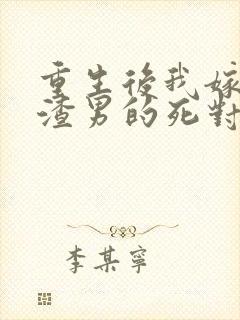 重生後我嫁
渣男的死對
李某寧